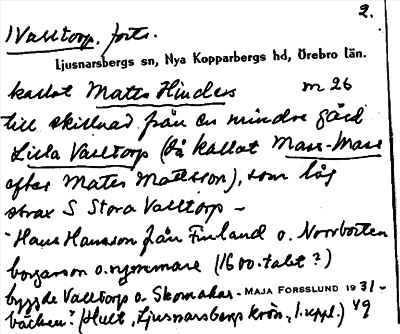 2.
Valltorp, forts.
Ljusnarsbergs sn, Nya Kopparbergs hd, Örebro län.
kallat Mates Hinders nr 26
till skillnad från en mindre gård
Lilla Valltorp (då kallat Mass-Mass
efter Mates Mattsson), som låg
strax S Stora Valltorp –
"Hans Hansson från Finland o. Norrbotten
borgarson o. nyrommare (1600-talet?)
byggde Valltorp o. Skomakar- MAJA FORSSLUND 1931-
bäcken." (Hult, Ljusnarsbergs krön., 1. uppl.) 49